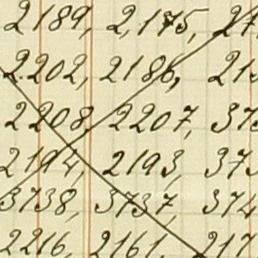 2189, 2,175, 27
2.202, 2186, 213
2208, 2207, 373
2194, 2193, 373
3738, 3737, 374
2216, 2161, 217